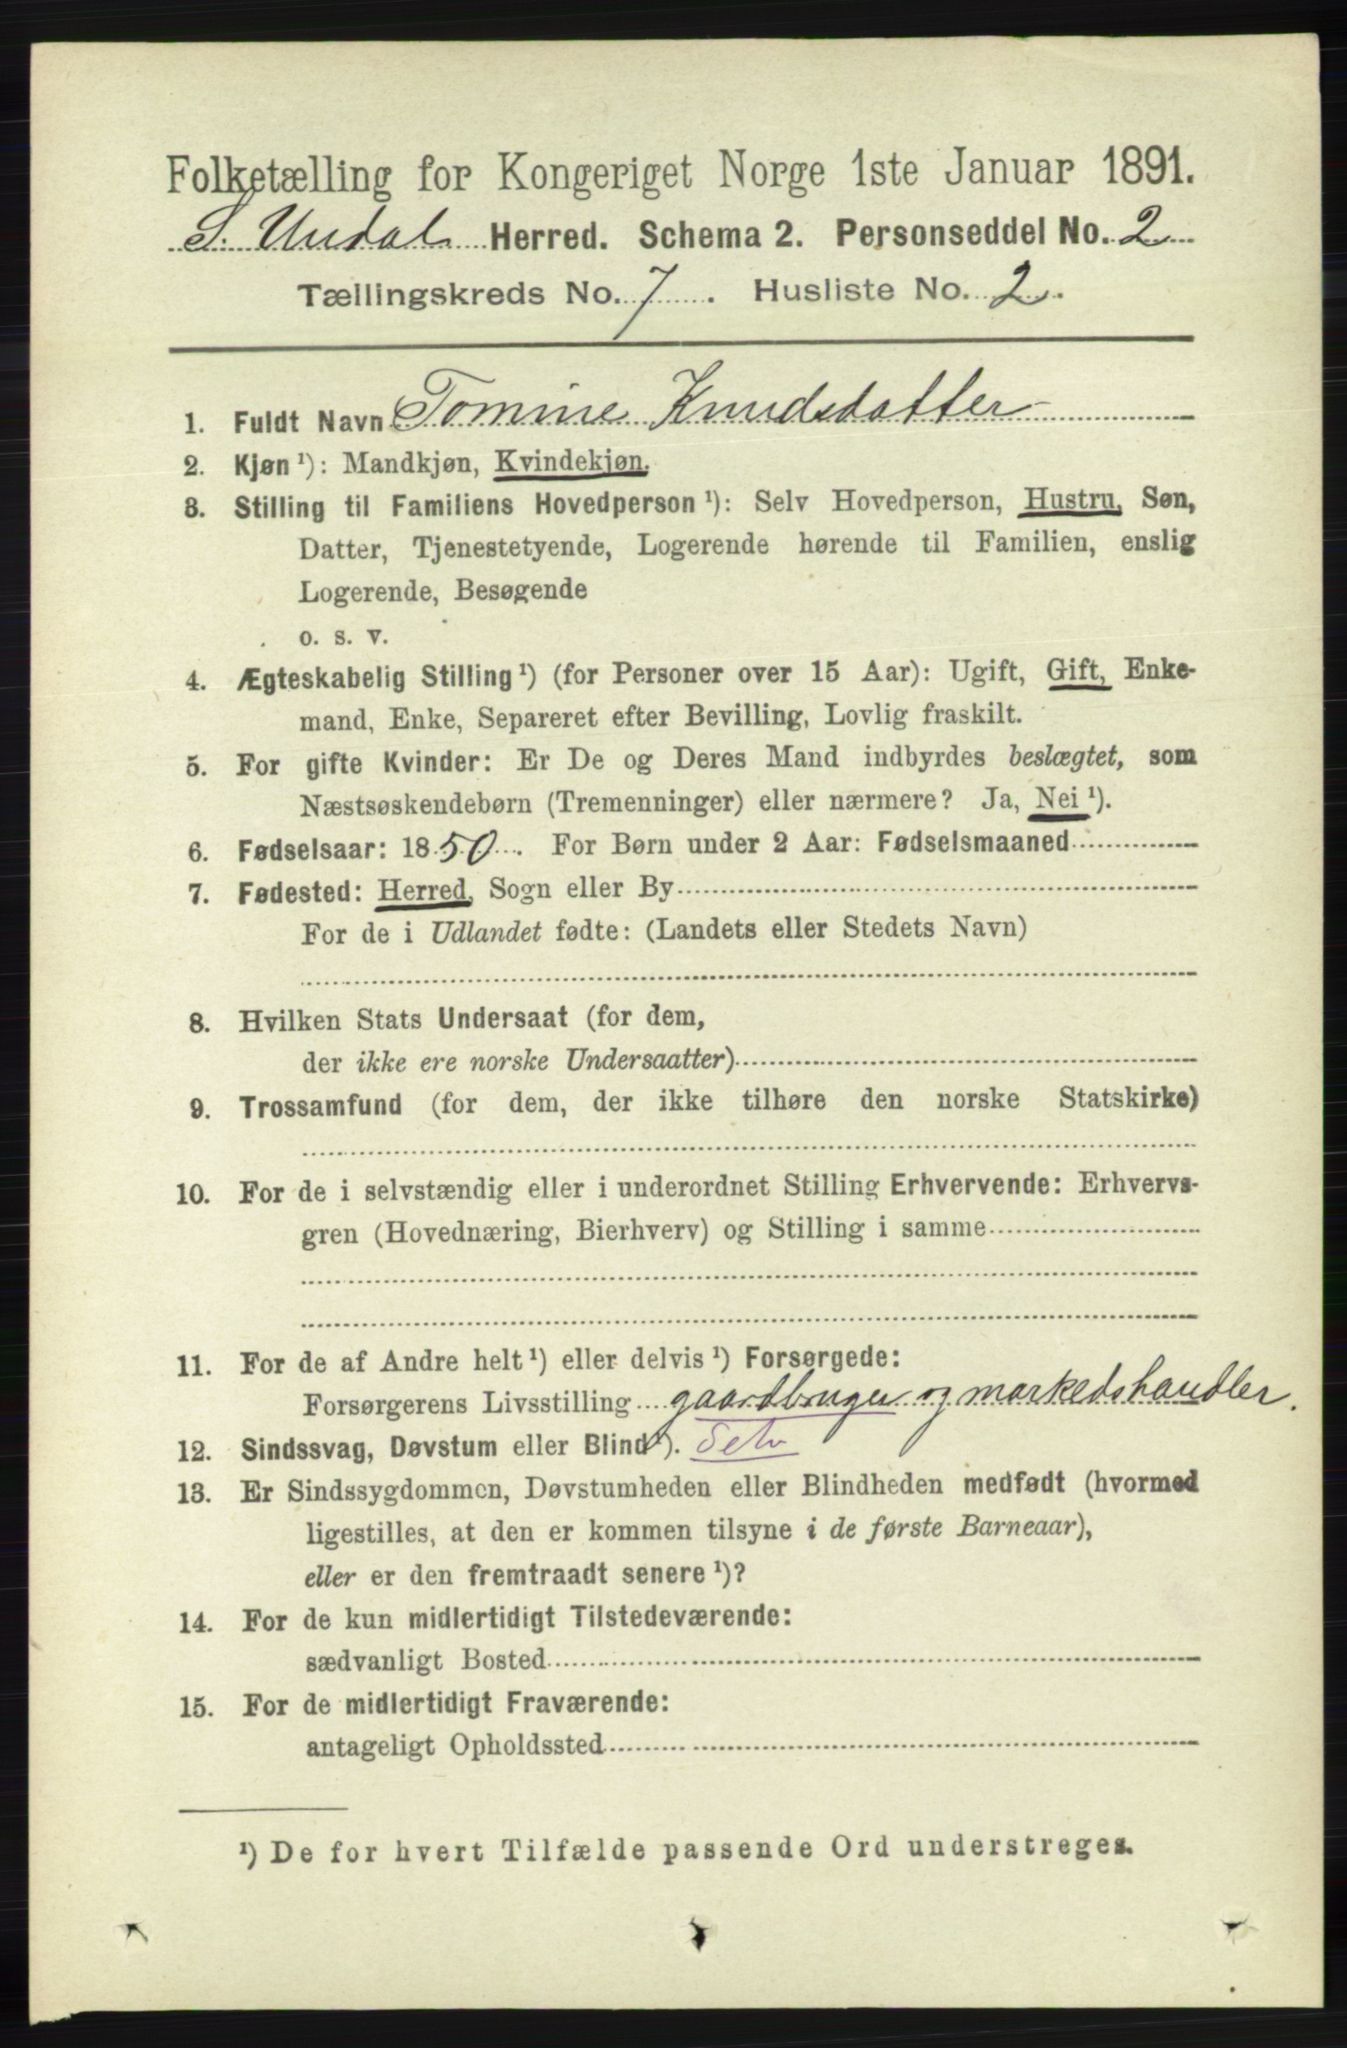 Folketælling for Kongeriget Norge 1ste Januar 1891.
S. Undal Herred. Schema 2. Personseddel No. 2
Tællingskreds No. 7. Husliste No. 2.
1. Fuldt Navn Tomine Knudsdatter
2. Kjøn ¹): Mandkjøn, Kvindekjøn.
3. Stilling til Familiens Hovedperson ¹): Selv Hovedperson, Hustru, Søn,
Datter, Tjenestetyende, Logerende hørende til Familien, enslig
Logerende, Besøgende
o. s. v.
4. Ægteskabelig Stilling ¹) (for Personer over 15 Aar): Ugift, Gift, Enke-
mand, Enke, Separeret efter Bevilling, Lovlig fraskilt.
5. For gifte Kvinder: Er De og Deres Mand indbyrdes beslægtet, som
Næstsøskendebørn (Tremenninger) eller nærmere? Ja, Nei ¹).
6. Fødselsaar: 1850. For Børn under 2 Aar: Fødselsmaaned
7. Fødested: Herred, Sogn eller By
For de i Udlandet fødte: (Landets eller Stedets Navn)
8. Hvilken Stats Undersaat (for dem,
der ikke ere norske Undersaatter)
9. Trossamfund (for dem, der ikke tilhøre den norske Statskirke)
10. For de i selvstændig eller i underordnet Stilling Erhvervende: Erhvervs-
gren (Hovednæring, Bierhverv) og Stilling i samme
11. For de af Andre helt ¹) eller delvis ¹) Forsørgede:
Forsørgerens Livsstilling gaardbruger og markedshandler.
12. Sindssvag, Døvstum eller Blind ¹). Selv
13. Er Sindssygdommen, Døvstumheden eller Blindheden medfødt (hvormed
ligestilles, at den er kommen tilsyne i de første Barneaar),
eller er den fremtraadt senere ¹)?
14. For de kun midlertidigt Tilstedeværende:
sædvanligt Bosted
15. For de midlertidigt Fraværende:
antageligt Opholdssted
¹) De for hvert Tilfælde passende Ord understreges.